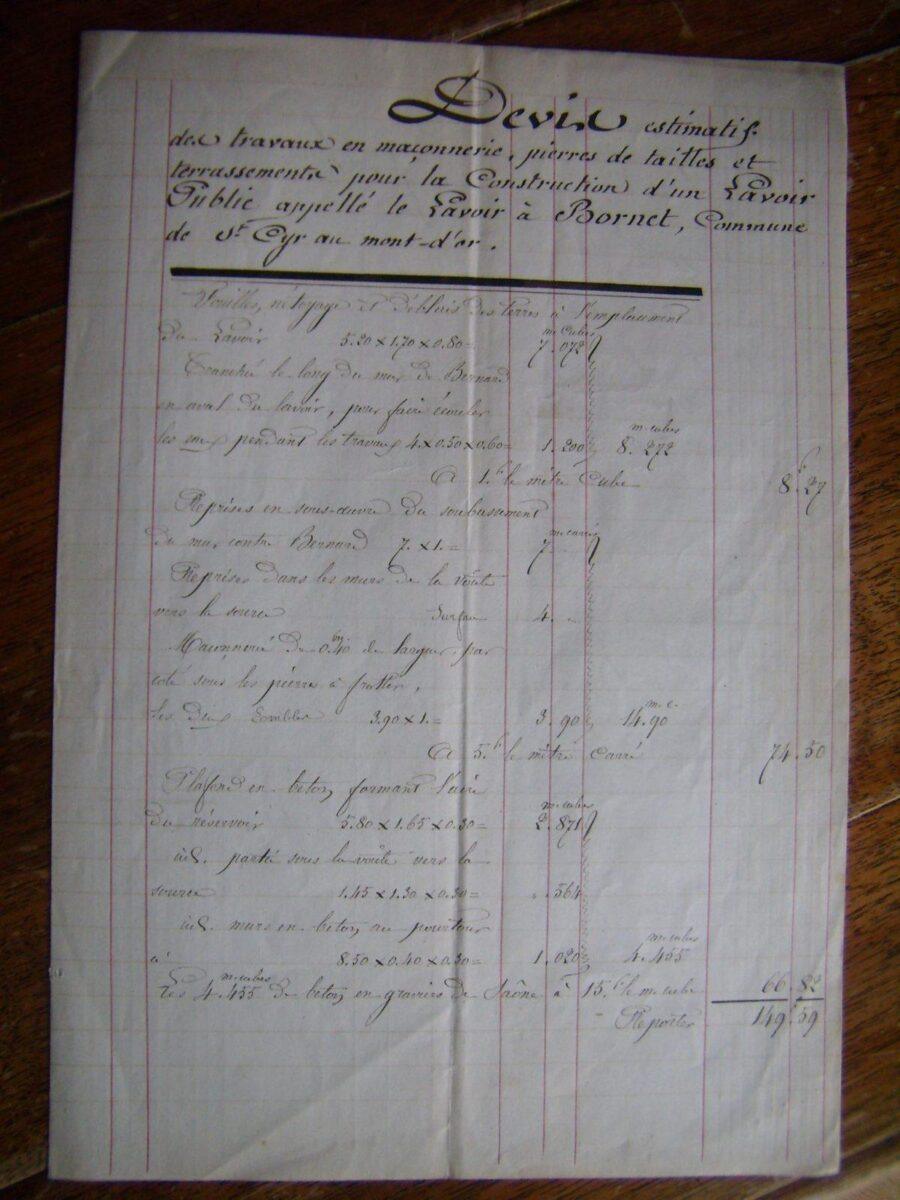 Devis estimatif
des travaux en maçonnerie, pierres de tailles et
terrassements pour la Construction d'un Lavoir
Public appellé le Lavoir à Bornet, Commune
de St Cyr au mont-d'or.
Fouilles, nétoyage et déblais des terres à l'emplacement
du Lavoir 5.20 x 1.70 x 0.80 = m. Cubes 7.072
Tranchée le long du mur de Bernard
en aval du lavoir, pour faire écouler
les eaux pendant les travaux 4 x 0.50 x 0.60 = 1.200 m. cubes 8.272
A 1.f le mètre Cube 8f.27
Reprises en sous-œuvre du soubassement
du mur contre Bernard 7. x 1. = m. carrés 7
Reprises dans les murs de la voûte
vers la source Surface 4. "
Maçonnerie de 0.m40 de largeur par
coté sous les pierres à frotter,
les deux 3.90 x 1. = 3.90 m. c. 14.90
A 5.f le mètre carré 74.50
Plafond en béton, formant l'aire
du réservoir 5.80 x 1.65 x 0.30 = m. cubes 2.871
id. partie sous la voûte vers la
source 1.45 x 1.30 x 0.30 = ".564
id. murs en béton au pourtour
8.50 x 0.40 x 0.30 = 1.020 m. cubes 4.455
Les 4.455 m. cubes de béton en graviers de Saône à 15.f le m. cube 66.82
Reporter 149f.59